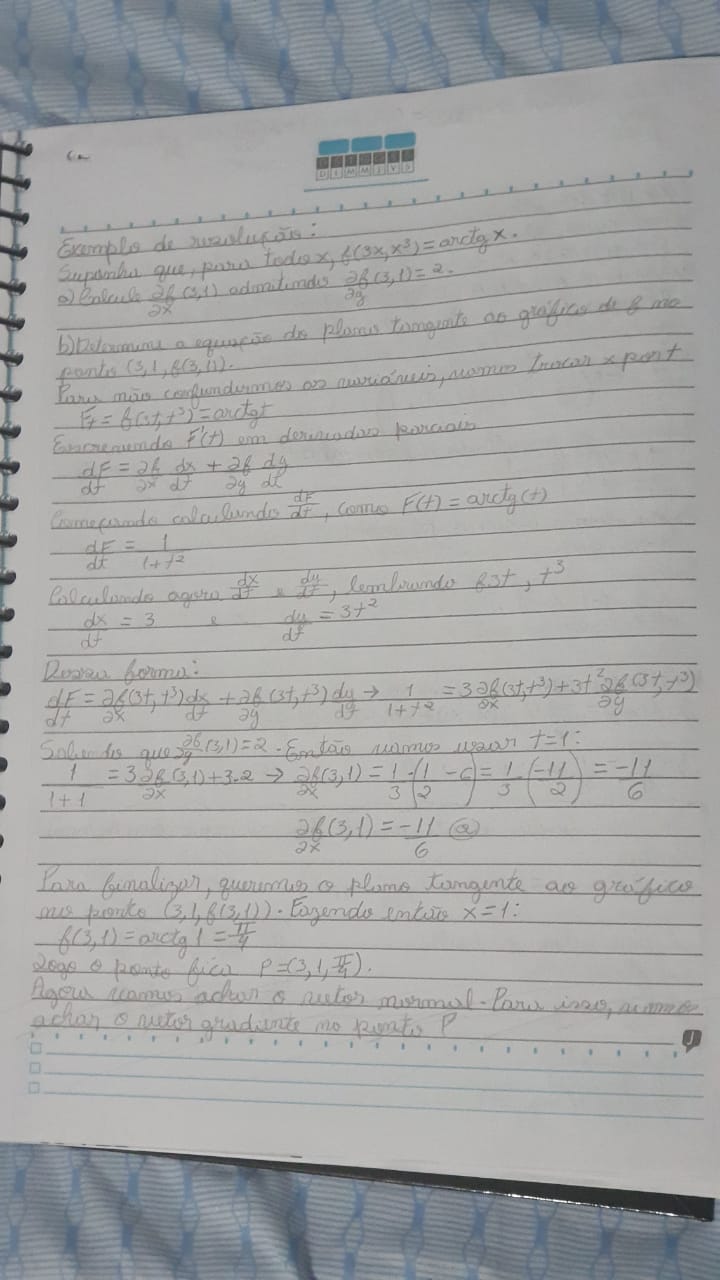 D S T Q Q S S
D L M M J V S
Exemplo de resolução:
Suponha que, para todo x, f(3x, x³) = arctg x.
a) Calcule ∂f/∂x (3,1) admitindo ∂f/∂y (3,1) = 2.
b) Determine a equação do plano tangente ao gráfico de f no
ponto (3,1, f(3,1)).
Para não confundirmos as variáveis, vamos trocar x por t
Ft = f(3t, t³) = arctgt
Escrevendo F'(t) em derivadas parciais
dF/dt = ∂f/∂x dx/dt + ∂f/∂y dy/dt
Começando calculando dF/dt, como F(t) = arctg(t)
dF/dt = 1/1+t²
Calculando agora dx/dt e dy/dt, lembrando f3t, t³
dx/dt = 3 e dy/dt = 3t²
Dessa forma:
dF/dt = ∂f/∂x (3t, t³) dx/dt + ∂f/∂y (3t, t³) dy/dt → 1/1+t² = 3 ∂f/∂x (3t, t³) + 3t² ∂f/∂y (3t, t³)
Sabendo que ∂f/∂y (3,1) = 2. Então vamos usar t=1:
1/1+1 = 3 ∂f/∂x (3,1) + 3.2 → ∂f/∂x (3,1) = 1/3 · (1/2 - 6) = 1/3 (-11/2) = -11/6
∂f/∂x (3,1) = -11/6 (a)
Para finalizar, queremos o plano tangente ao gráfico
no ponto (3,1, f(3,1)). Fazendo então x=1:
f(3,1) = arctg 1 = π/4
Logo o ponto fica P=(3,1, π/4).
Agora vamos achar o vetor normal. Para isso, vamos
achar o vetor gradiente no ponto P